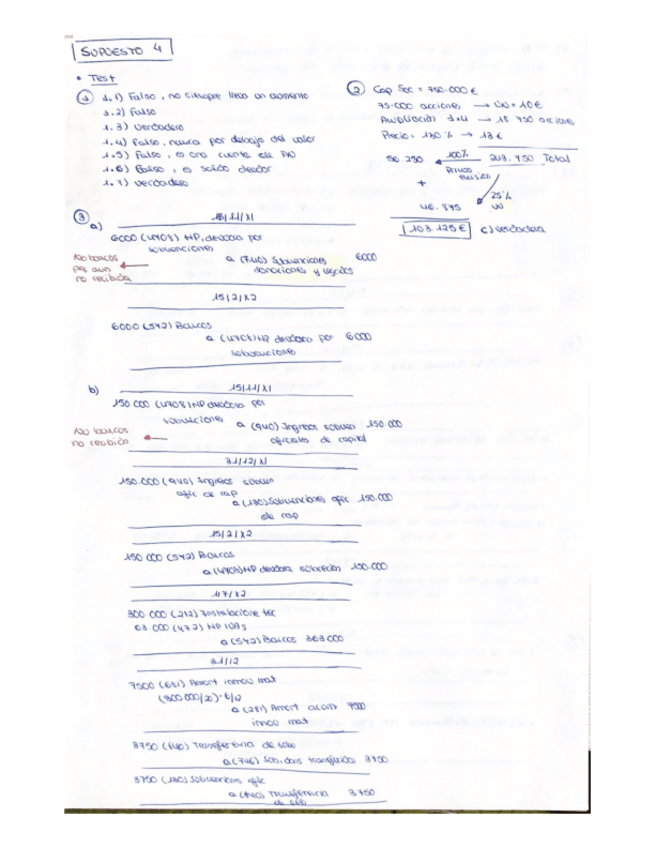 SUPUESTO 4
• Test
① 1.1) Falso, no siempre lleva un aumento
1.2) Falso
1.3) Verdadero
1.4) Falso, nunca por debajo del valor
1.5) Falso, es una cuenta de PN
1.6) Falso, es saldo deudor
1.7) Verdadero
② Cap Soc = 750.000 €
75.000 acciones → VN = 10 €
Ampliación 1x4 → 18 750 acciones
Precio = 130 % → 13 €
56.250 ← 100% Prima emisión 243.750 Total
+ 25%
46.875 VN
103.125 € c) verdadera
③
a) 15/11/X1
6000 (4708) HP, deudora por
subvenciones
a (740) Subvenciones 6000
donaciones y legados
No bancos
pq aun
no recibida
15/2/X2
6000 (572) Bancos
a (4708) HP deudora por 6000
subvenciones
b) 15/11/X1
150.000 (4708) HP deudora por
subvenciones a (940) Ingresos subven 150.000
oficiales de capital
No bancos
no recibida
31/12/X1
150.000 (940) Ingresos subven
ofic de cap
a (130) Subvenciones ofic 150.000
de cap
15/2/X2
150 000 (572) Bancos
a (4708) HP deudora subvención 150.000
1/7/X2
300 000 (212) Instalaciones tec
63 000 (472) HP IVA s
a (572) Bancos 363 000
31/12
7500 (681) Amort inmov mat
(300 000/20)· 6/12
a (281) Amort acum 7500
inmov mat
3750 (840) Transferencia de sub
a (746) Sub. cap transferidas 3750
3750 (130) Subvenciones ofic
a (840) Transferencia 3750
de sub